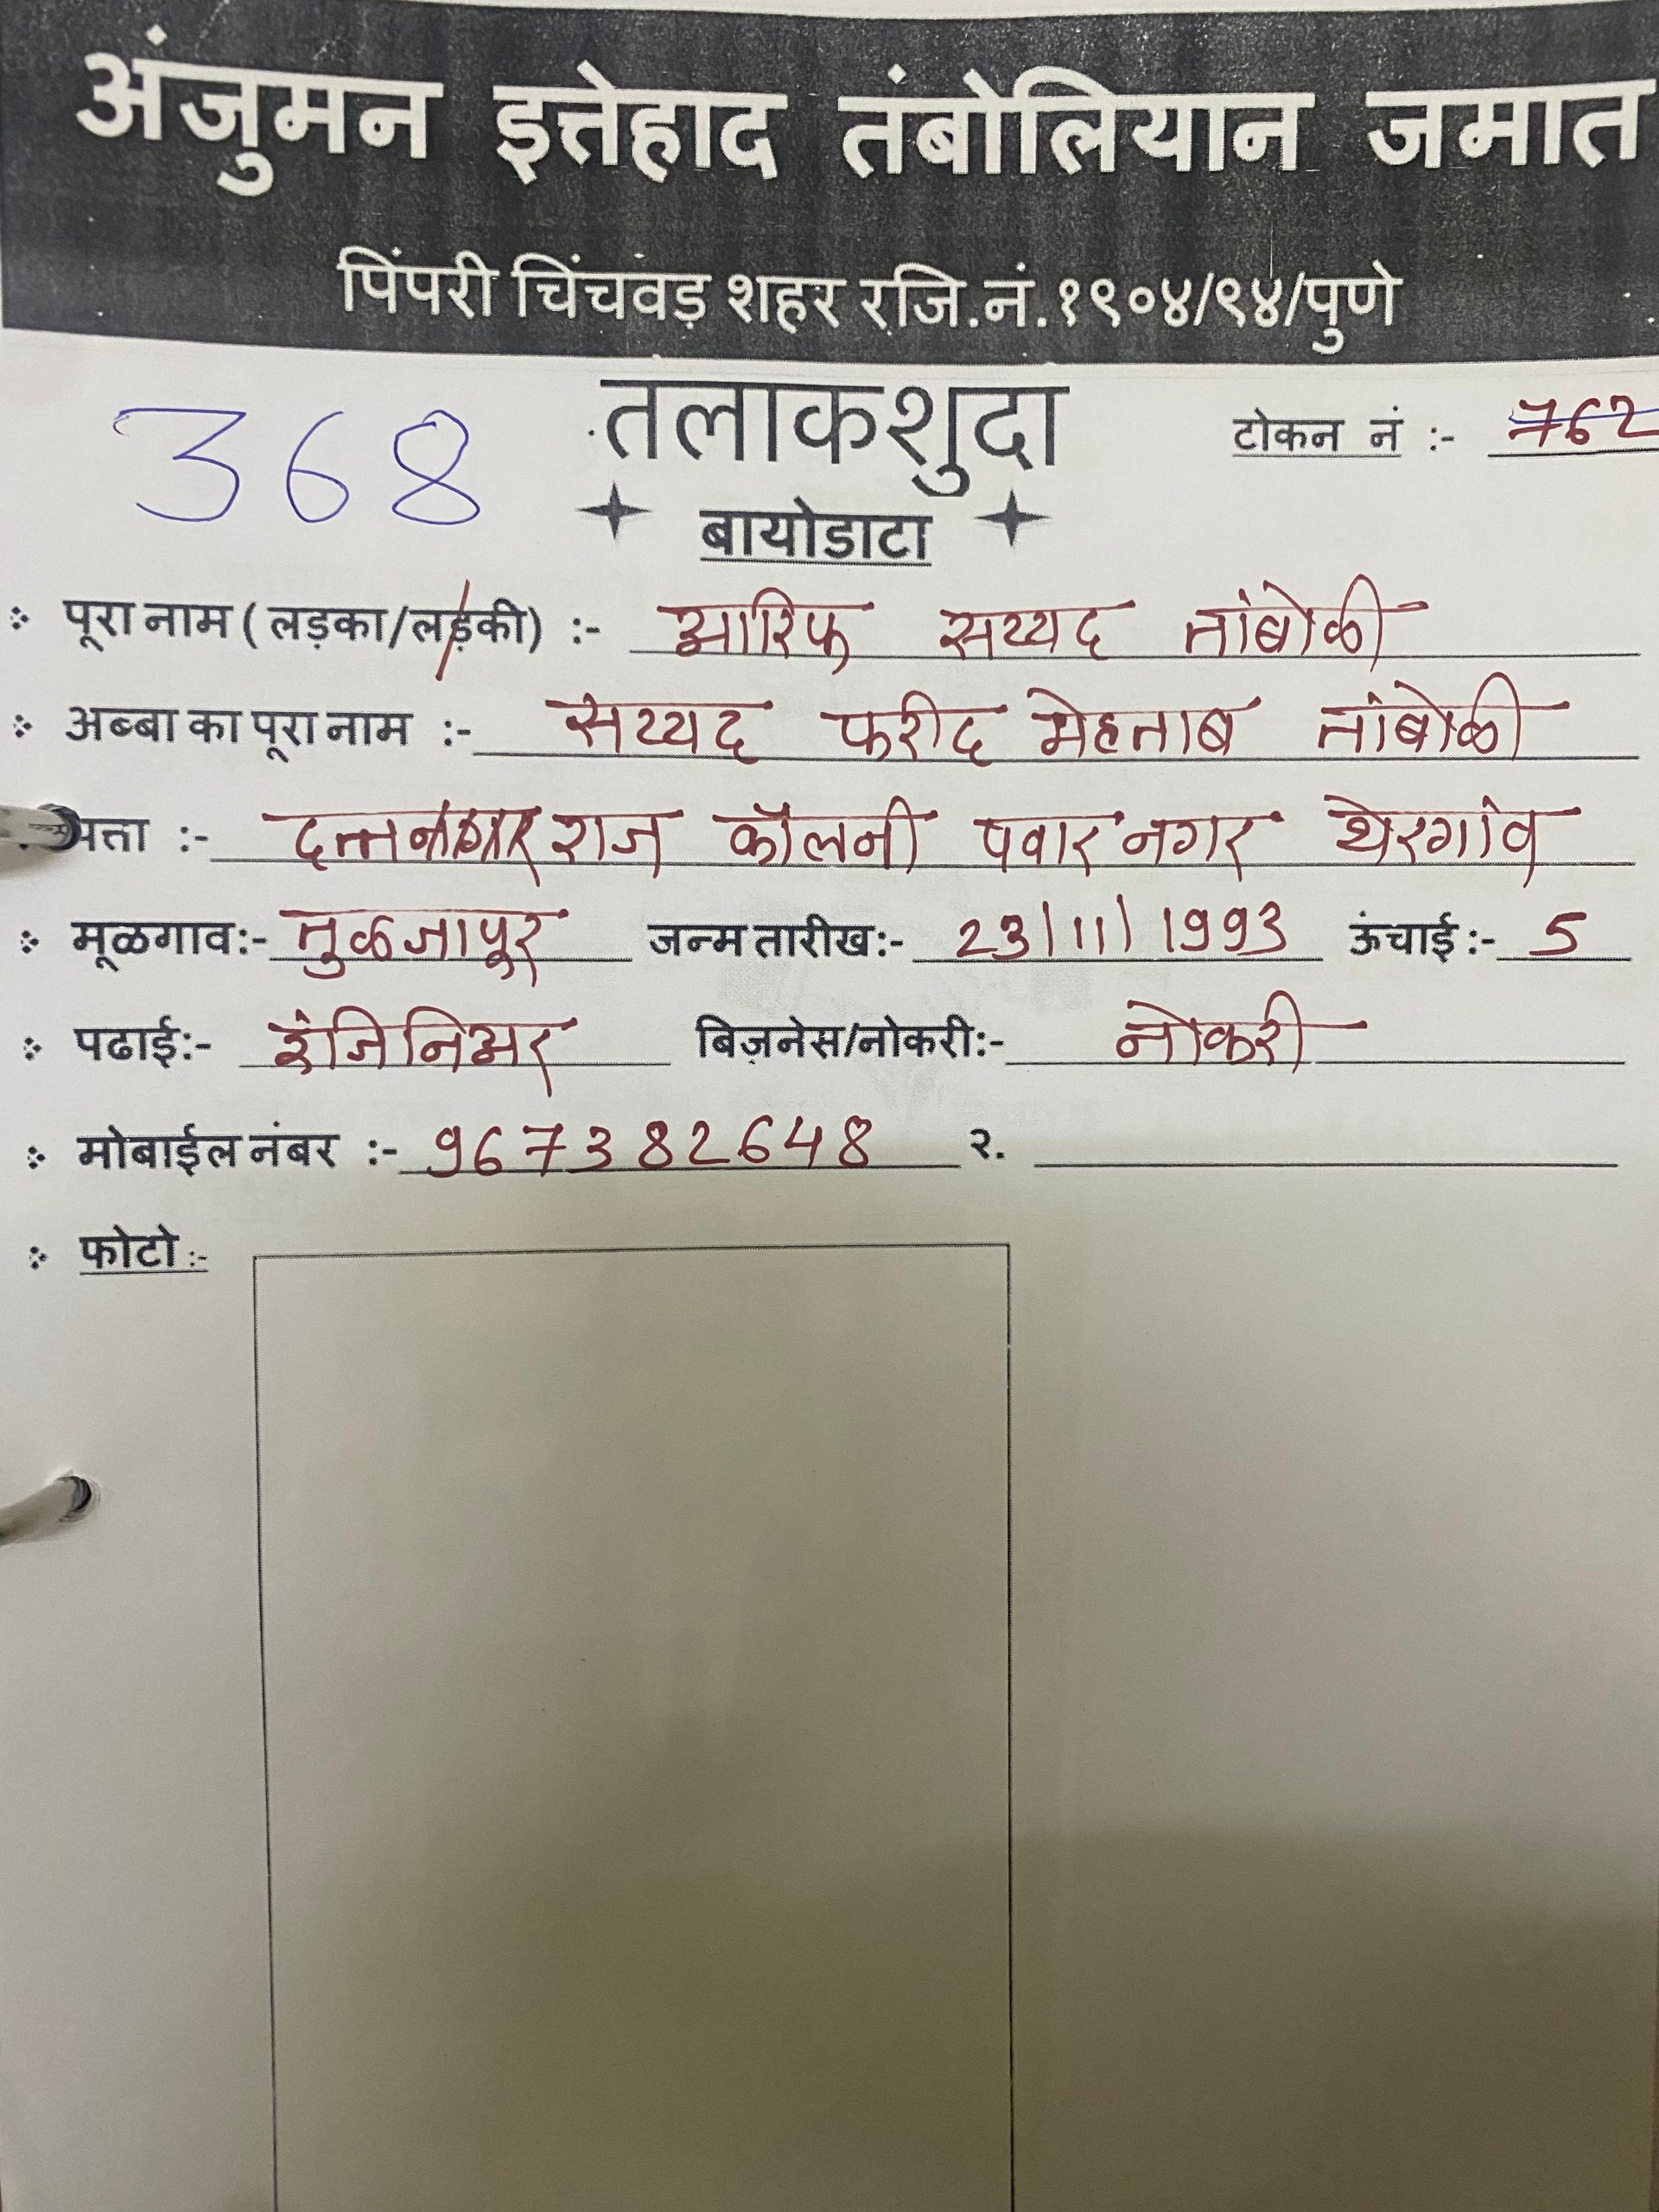 अंजुमन इत्तेहाद तंबोलियान जमात
पिंपरी चिंचवड़ शहर रजि.नं.१९०४/९४/पुणे
368
तलाकशुदा
टोकन नं :- 762
बायोडाटा
पूरा नाम ( लड़का/लड़की) :- आरिफ सय्यद तांबोळी
अब्बा का पूरा नाम :- सय्यद फरीद मेहताब तांबोळी
पत्ता :- राज कॉलनी पवार नगर थेरगांव
मूळगाव:- तुळजापूर जन्म तारीख:- 23/11/1993 ऊंचाई :- 5
पढाई:- इंजिनिअर बिज़नेस/नोकरी:- नोकरी
मोबाईल नंबर :- 967382648 २.
फोटो :-